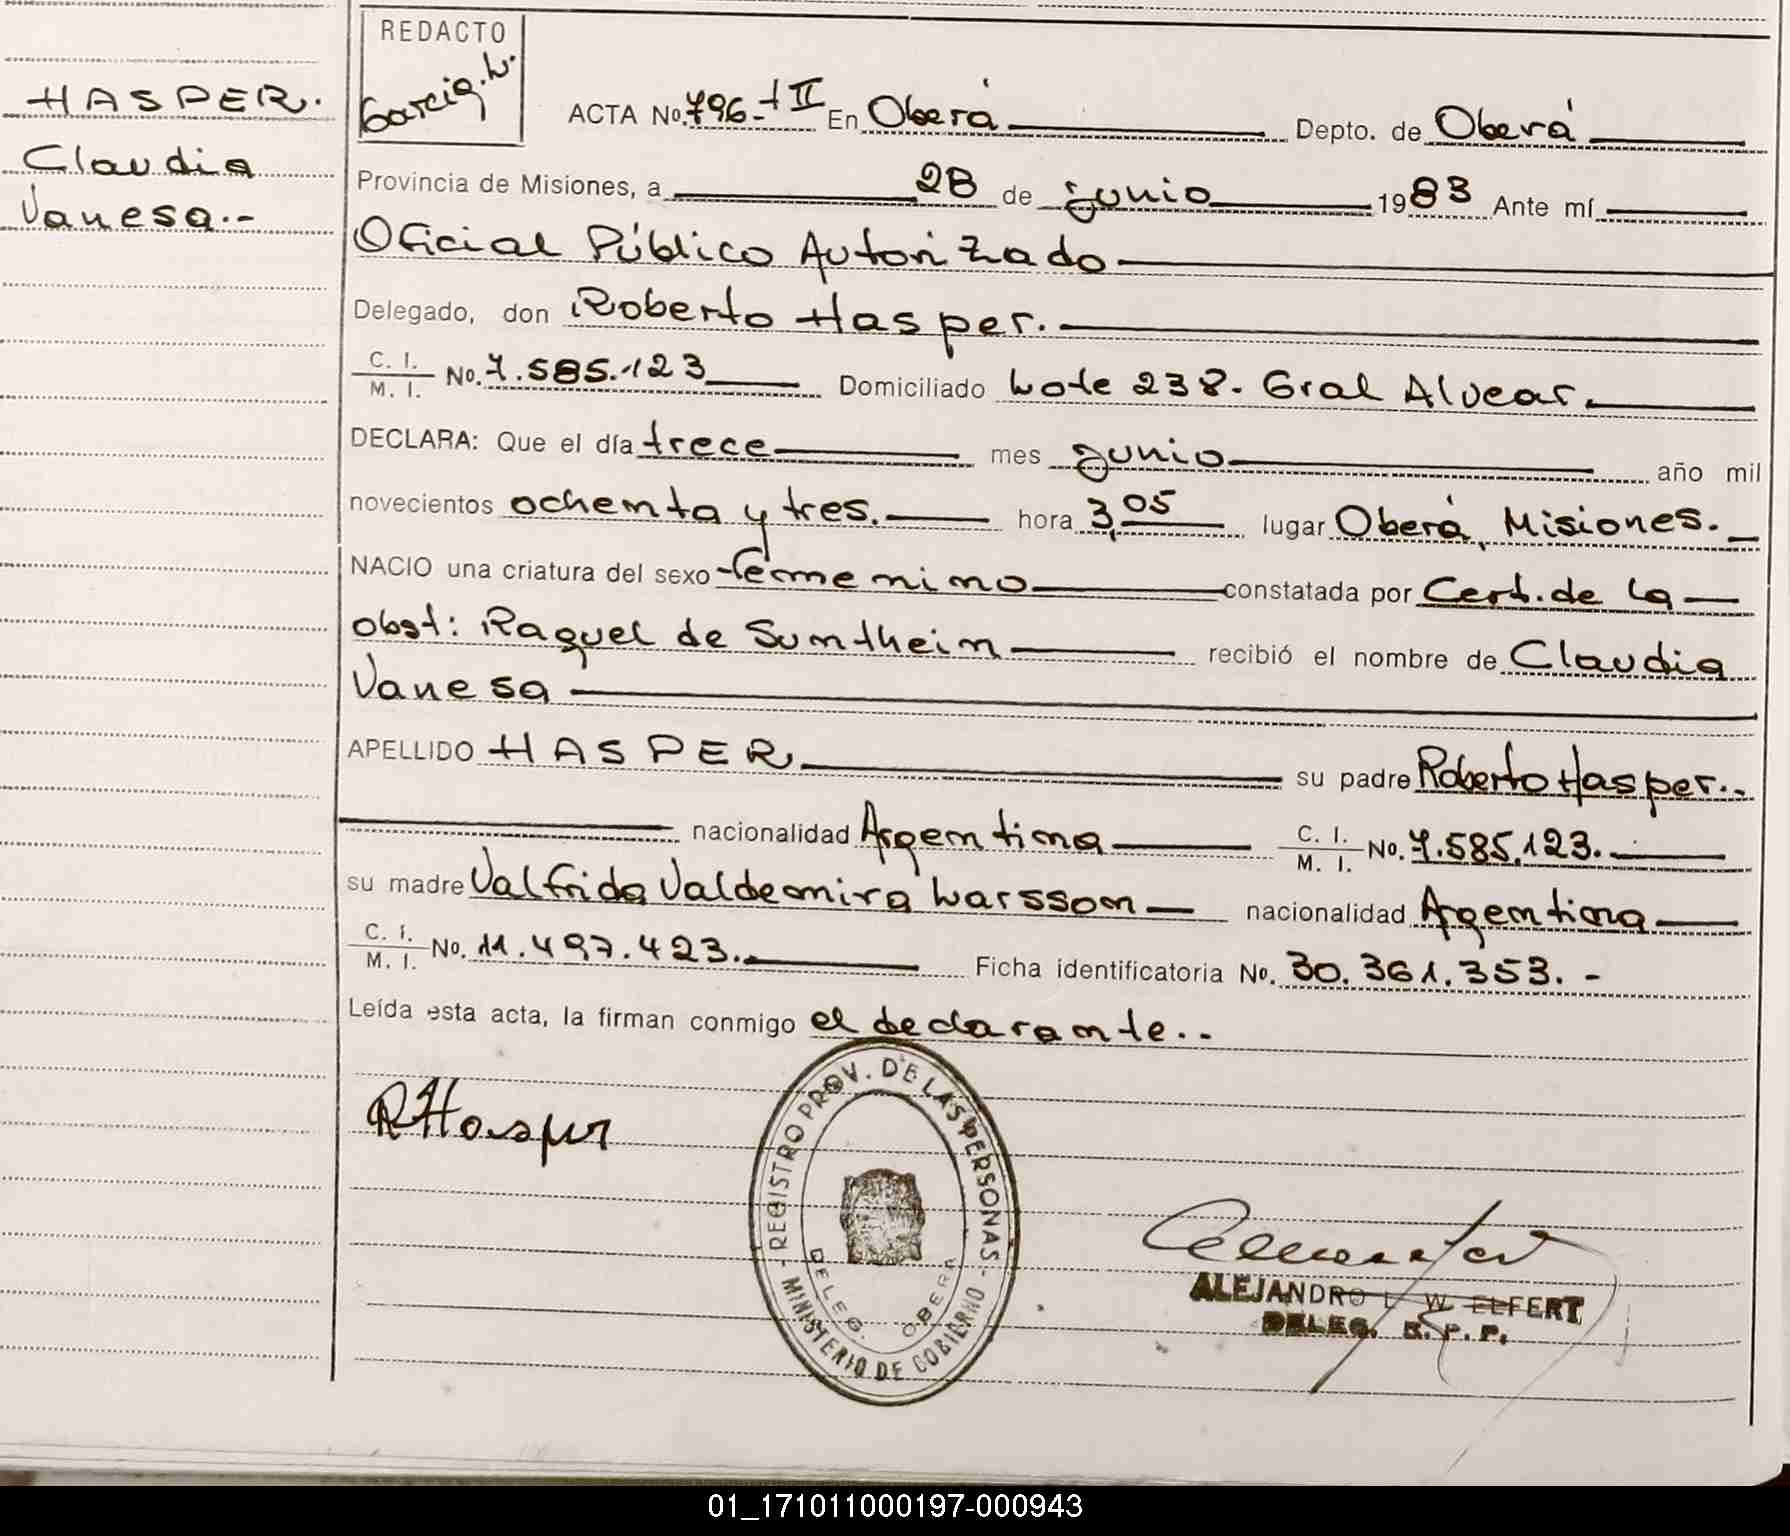 HASPER.
Claudia
Vanesa.-
REDACTO
Garcia. L.
ACTA No. 796-t II En Oberá Depto. de Oberá
Provincia de Misiones, a 28 de junio 1983 Ante mí
Oficial Público Autorizado
Delegado, don Roberto Hasper.
C. I. / M. I. No. 7.585.123 Domiciliado Lote 238. Gral Alvear.
DECLARA: Que el día trece mes junio año mil
novecientos ochenta y tres. hora 3,05 lugar Oberá, Misiones.
NACIO una criatura del sexo femenino constatada por Cert. de la
obst: Raquel de Suntheim recibió el nombre de Claudia
Vanesa
APELLIDO HASPER su padre Roberto Hasper..
nacionalidad Argentina C. I. / M. I. No. 7.585.123.
su madre Valfrida Valdemira Larsson nacionalidad Argentina
C. I. / M. I. No. 11.497.423. Ficha identificatoria No. 30.361.353.-
Leída esta acta, la firman conmigo el declarante..
RHasper
REGISTRO PROV. DE LAS PERSONAS - MINISTERIO DE GOBIERNO -
DELEG. OBERA
ALEJANDRO L. W. ELFERT
DELEG. R. P. P.
01_171011000197-000943